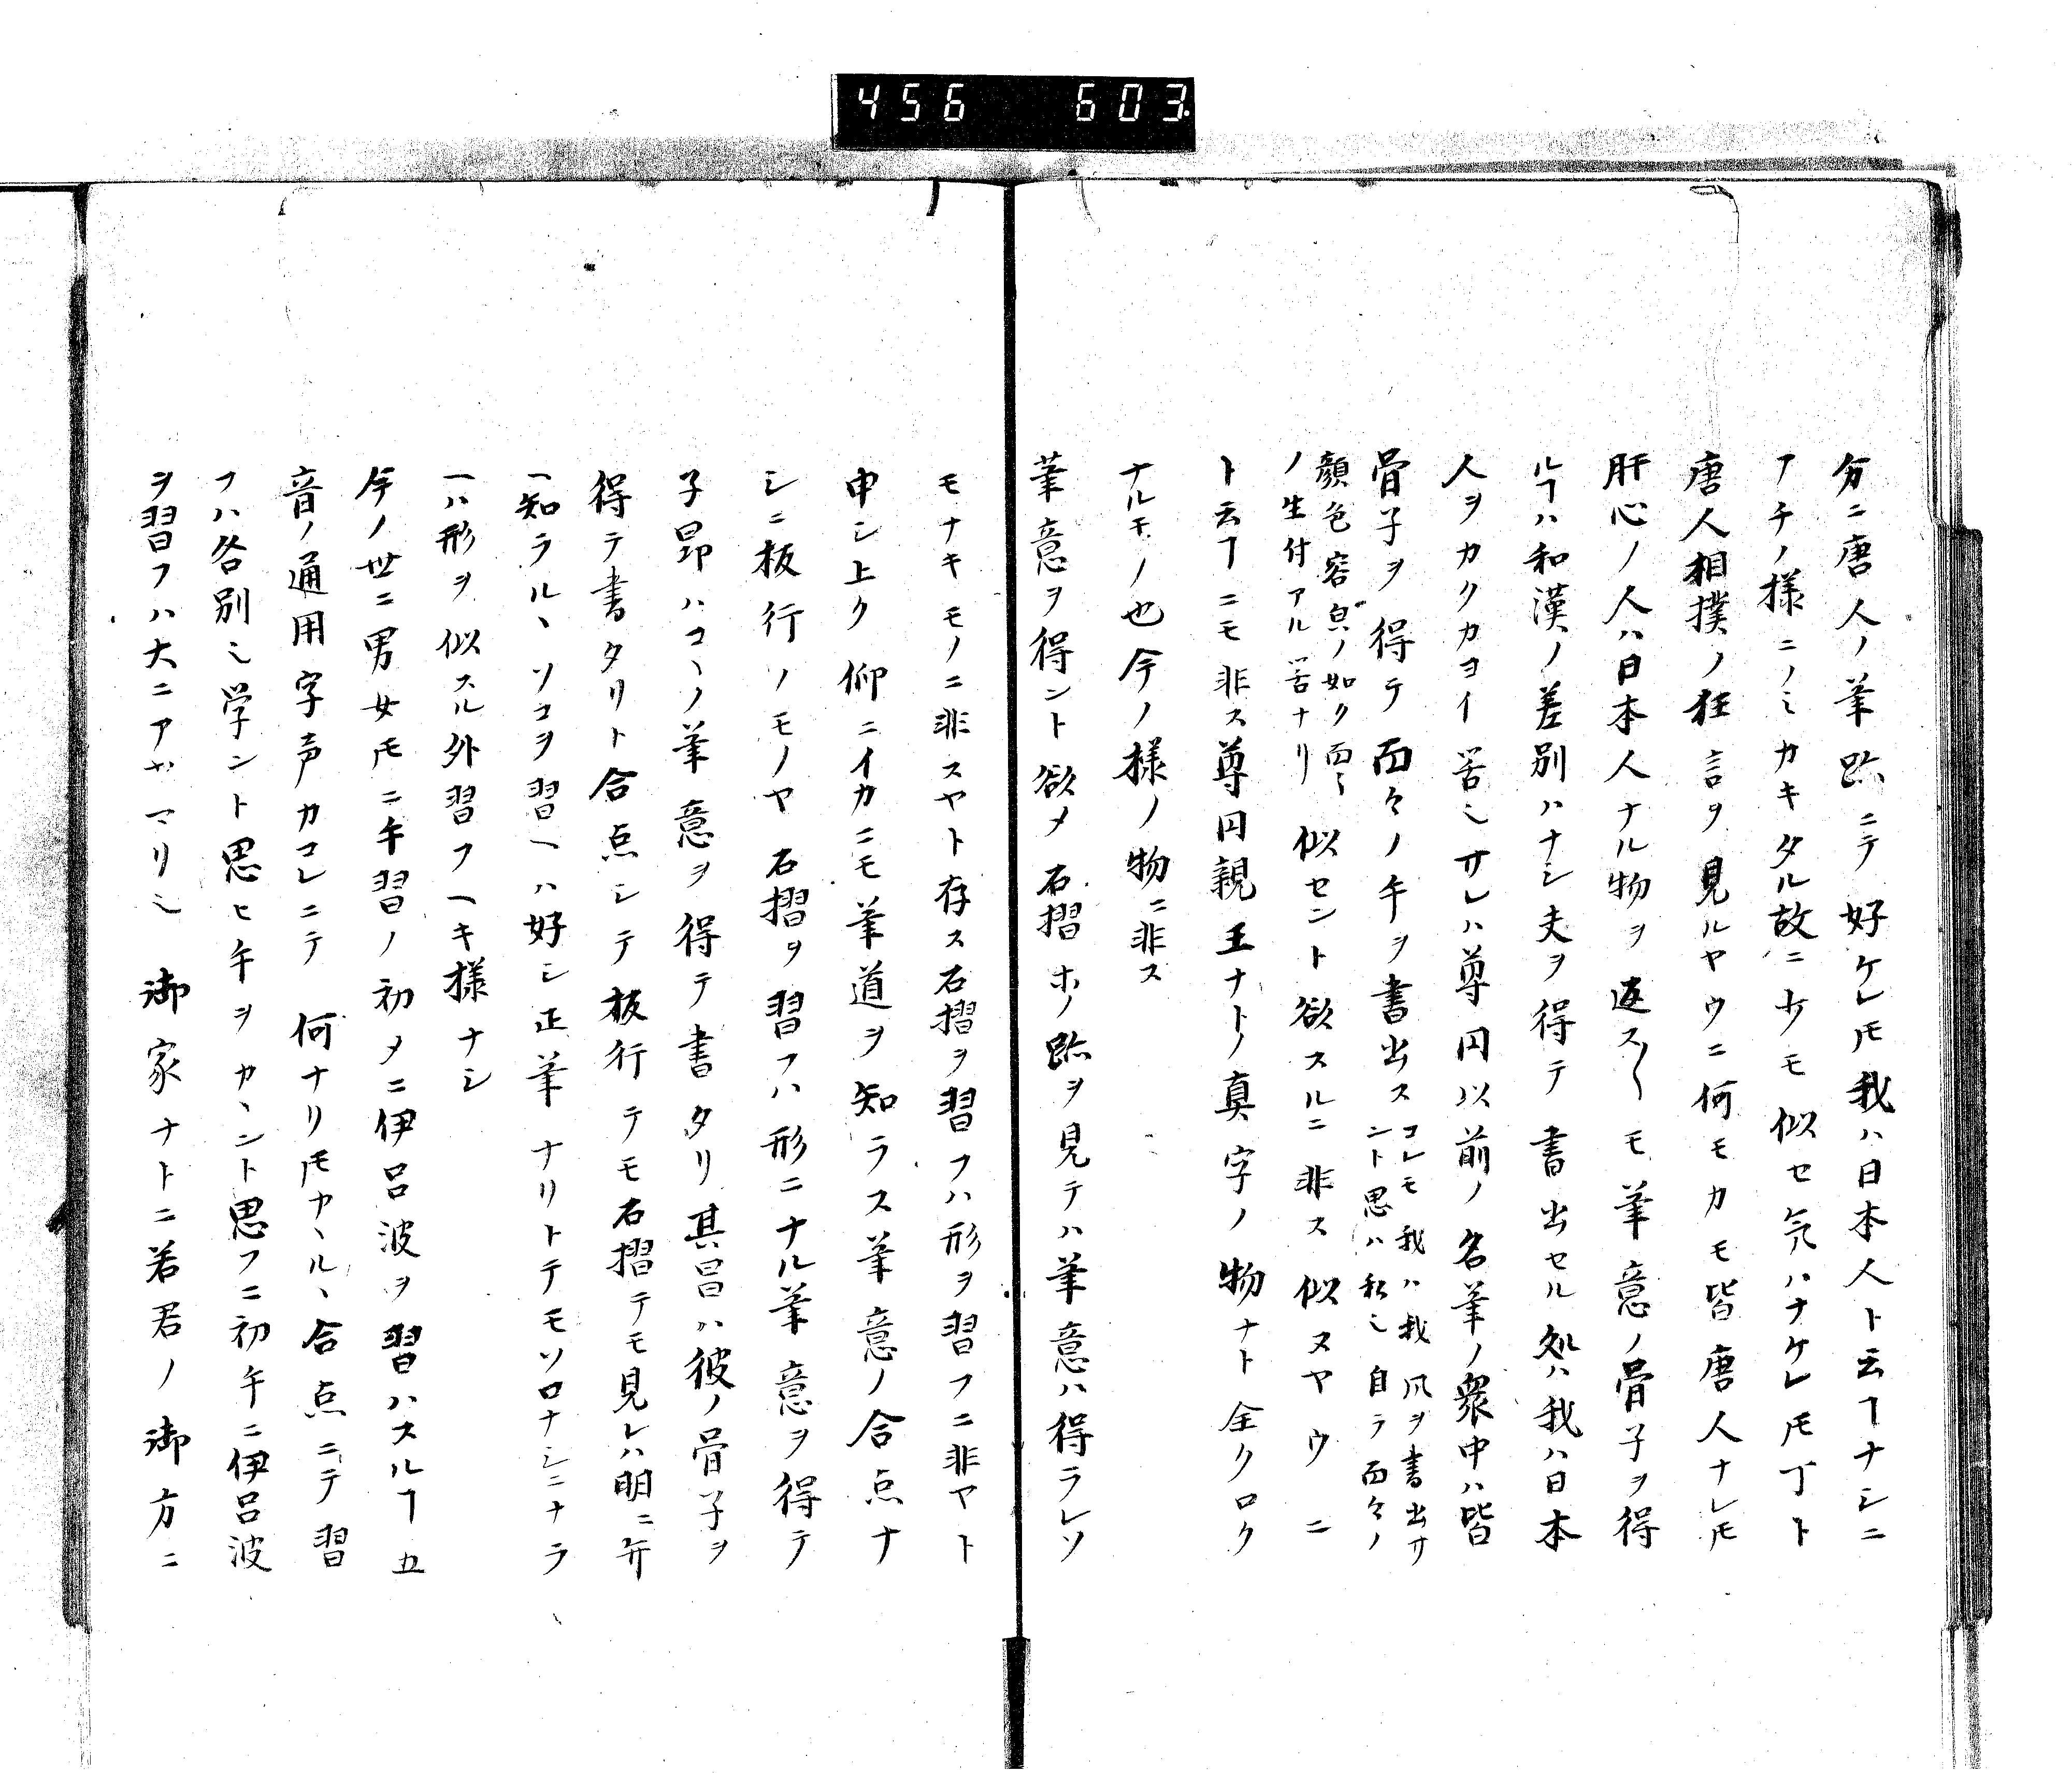 456 603
分ニ唐人ノ筆跡ニテ好ケレ𪜈我ハ日本人ト云ヿナシニ
アチノ様ニノミカキタル故ニ少モ似セ気ハナケレ𪜈丁ト
唐人相撲ノ狂言ヲ見ルヤウニ何モカモ皆唐人ナレ𪜈
肝心ノ人ハ日本人ナル物ヲ返ス〱モ筆意ノ骨子ヲ得
ルヿハ和漢ノ差別ハナシ夫ヲ得テ書出セル処ハ我ハ日本
人ヲカクカヨイ筈也サレハ尊円以前ノ名筆ノ衆中ハ皆
骨子ヲ得テ面々ノ手ヲ書出スコレモ我ハ我风ヲ書出サ
ント思ハ私也自ラ面々ノ
顔色容㒵ノ如ク面々
ノ生付アル筈ナリ似セント欲スルニ非ス似ヌヤウニ
ト云ヿニモ非ス尊円親王ナトノ真字ノ物ナト全クロク
ナルモノ也今ノ様ノ物ニ非ス
筆意ヲ得ント欲メ石摺ホノ跡ヲ見テハ筆意ハ得ラレソ
モナキモノニ非スヤト存ス石摺ヲ習フハ形ヲ習フニ非ヤト
申シ上ク仰ニイカニモ筆道ヲ知ラス筆意ノ合点ナ
シニ板行ノモノヤ石摺ヲ習フハ形ニナル筆意ヲ得テ
子昂ハコヽノ筆意ヲ得テ書タリ其昌ハ彼ノ骨子ヲ
得テ書タリト合点シテ板行テモ石摺テモ見レハ明ニ弁
ヘ知ラルヽソコヲ習ヘハ好シ正筆ナリトテモソロナシニナラ
ヘハ形ヲ似スル外習フヘキ様ナシ
今ノ世ニ男女𪜈ニ手習ノ初メニ伊呂波ヲ習ハスルヿ五
音ノ通用字声カコレニテ何ナリ𪜈ヤヽルヽ合点ニテ習
フハ各別也学ント思ヒ手ヲカヽント思フニ初手ニ伊呂波
ヲ習フハ大ニアヤマリ也御家ナトニ若君ノ御方ニ